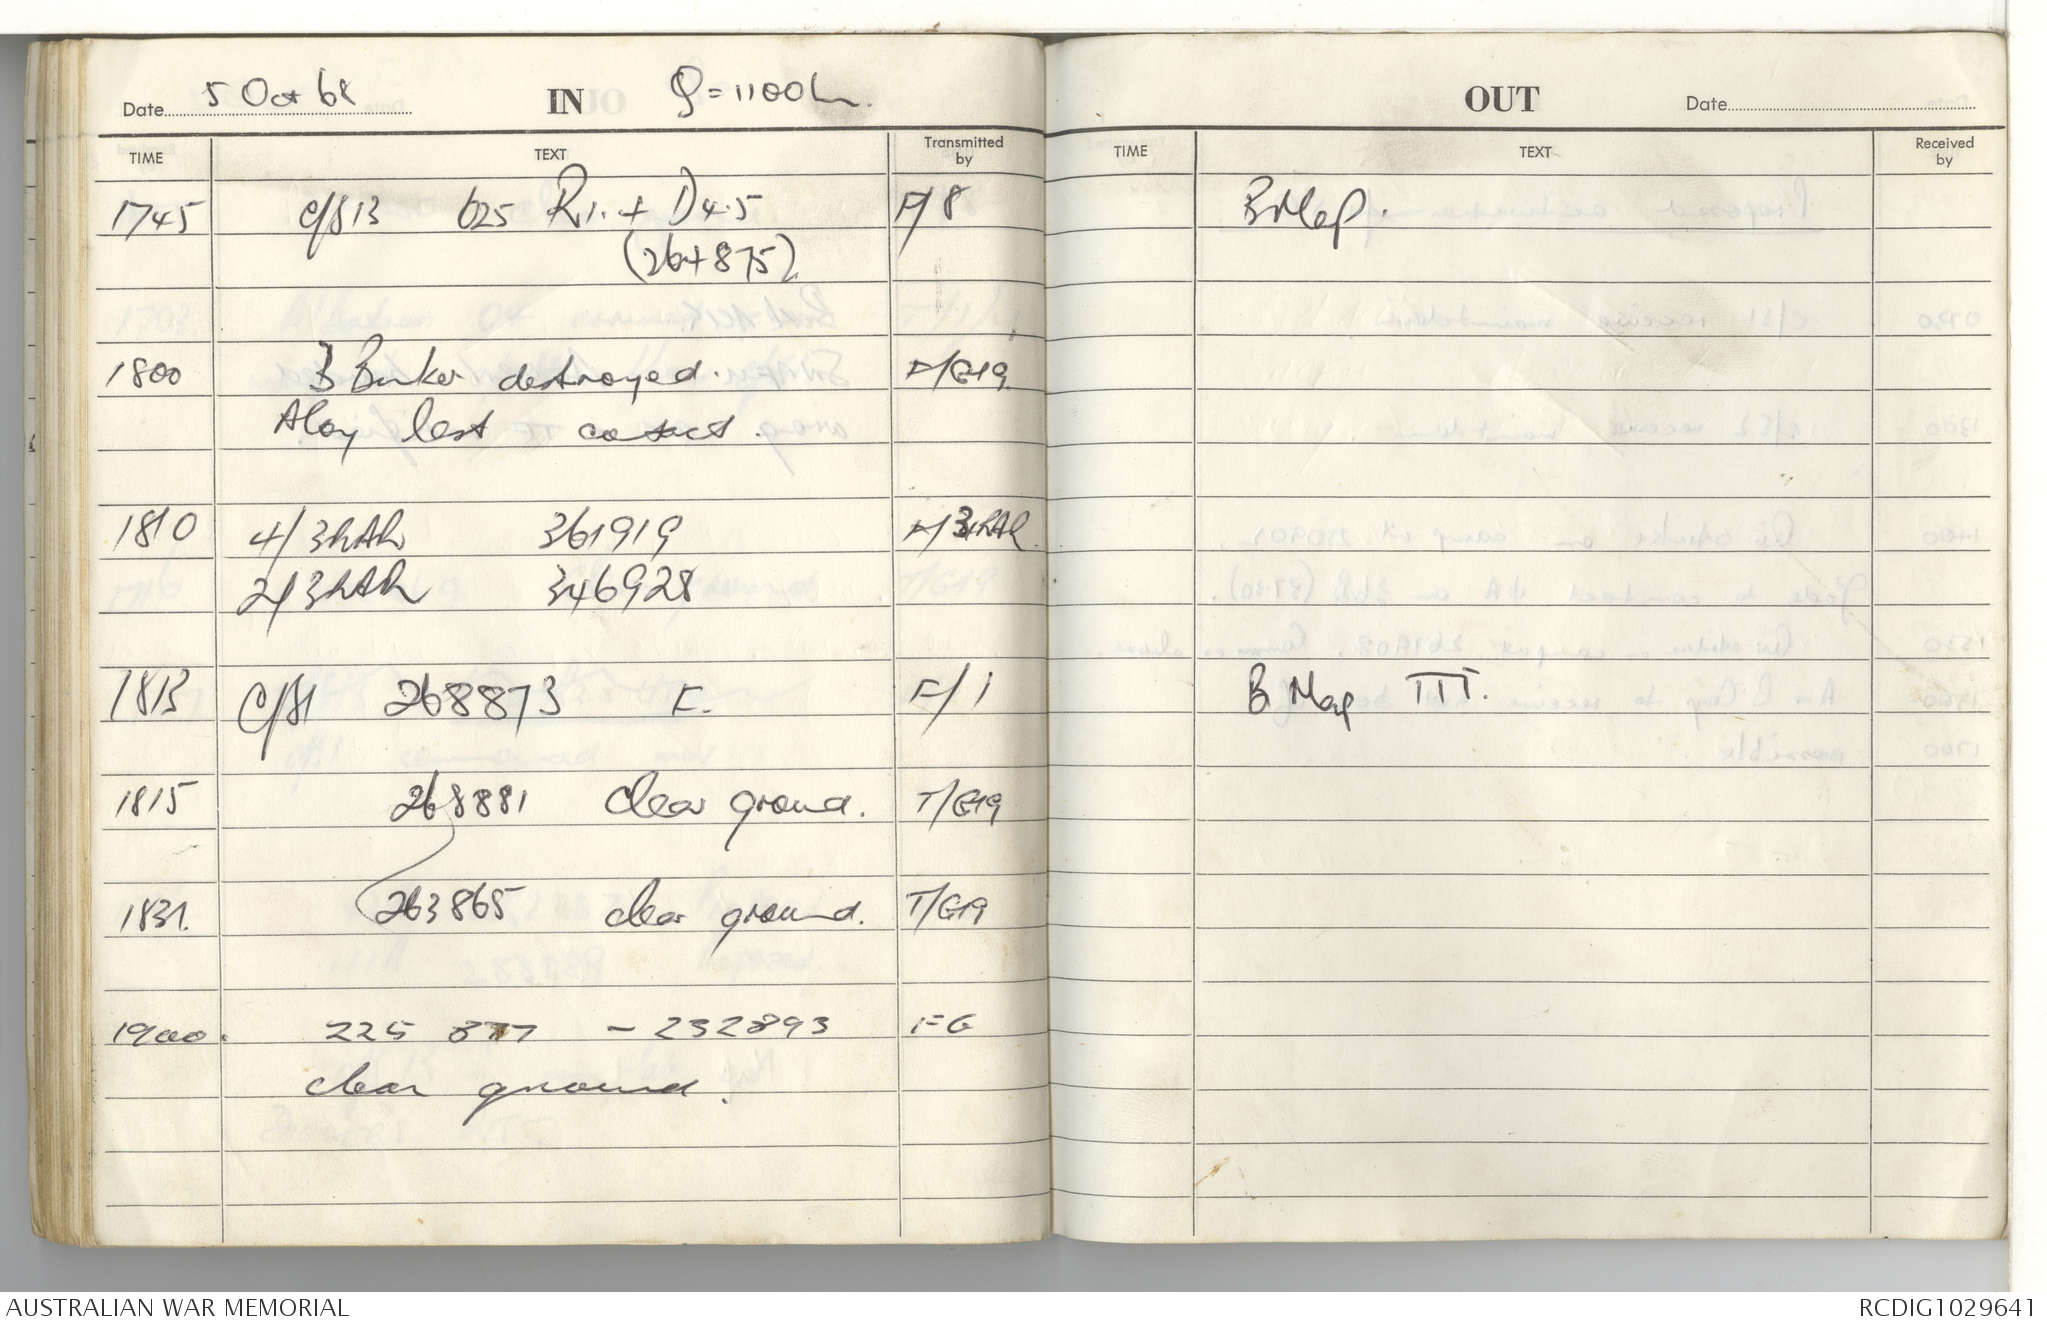 Date 5 Oct 68 IN = 1100h.
TIME TEXT Transmitted by
1745 C/S 13 625 R1. + D4.5 F/8
(264875)
1800 3 Bunker destroyed. F/G19
A Coy last contact.
1810 4/3RAR 361919 F/3RAR.
2/3RAR 346928
1813 C/S1 268873 F. F/1
1815 268881 clear ground. T/G19
1831. 263865 clear ground. T/G19
1900. 225 877 - 232893 FG
clear ground.
OUT Date
TIME TEXT Received by
B Map.
B Map TTT.
AUSTRALIAN WAR MEMORIAL
RCDIG1029641